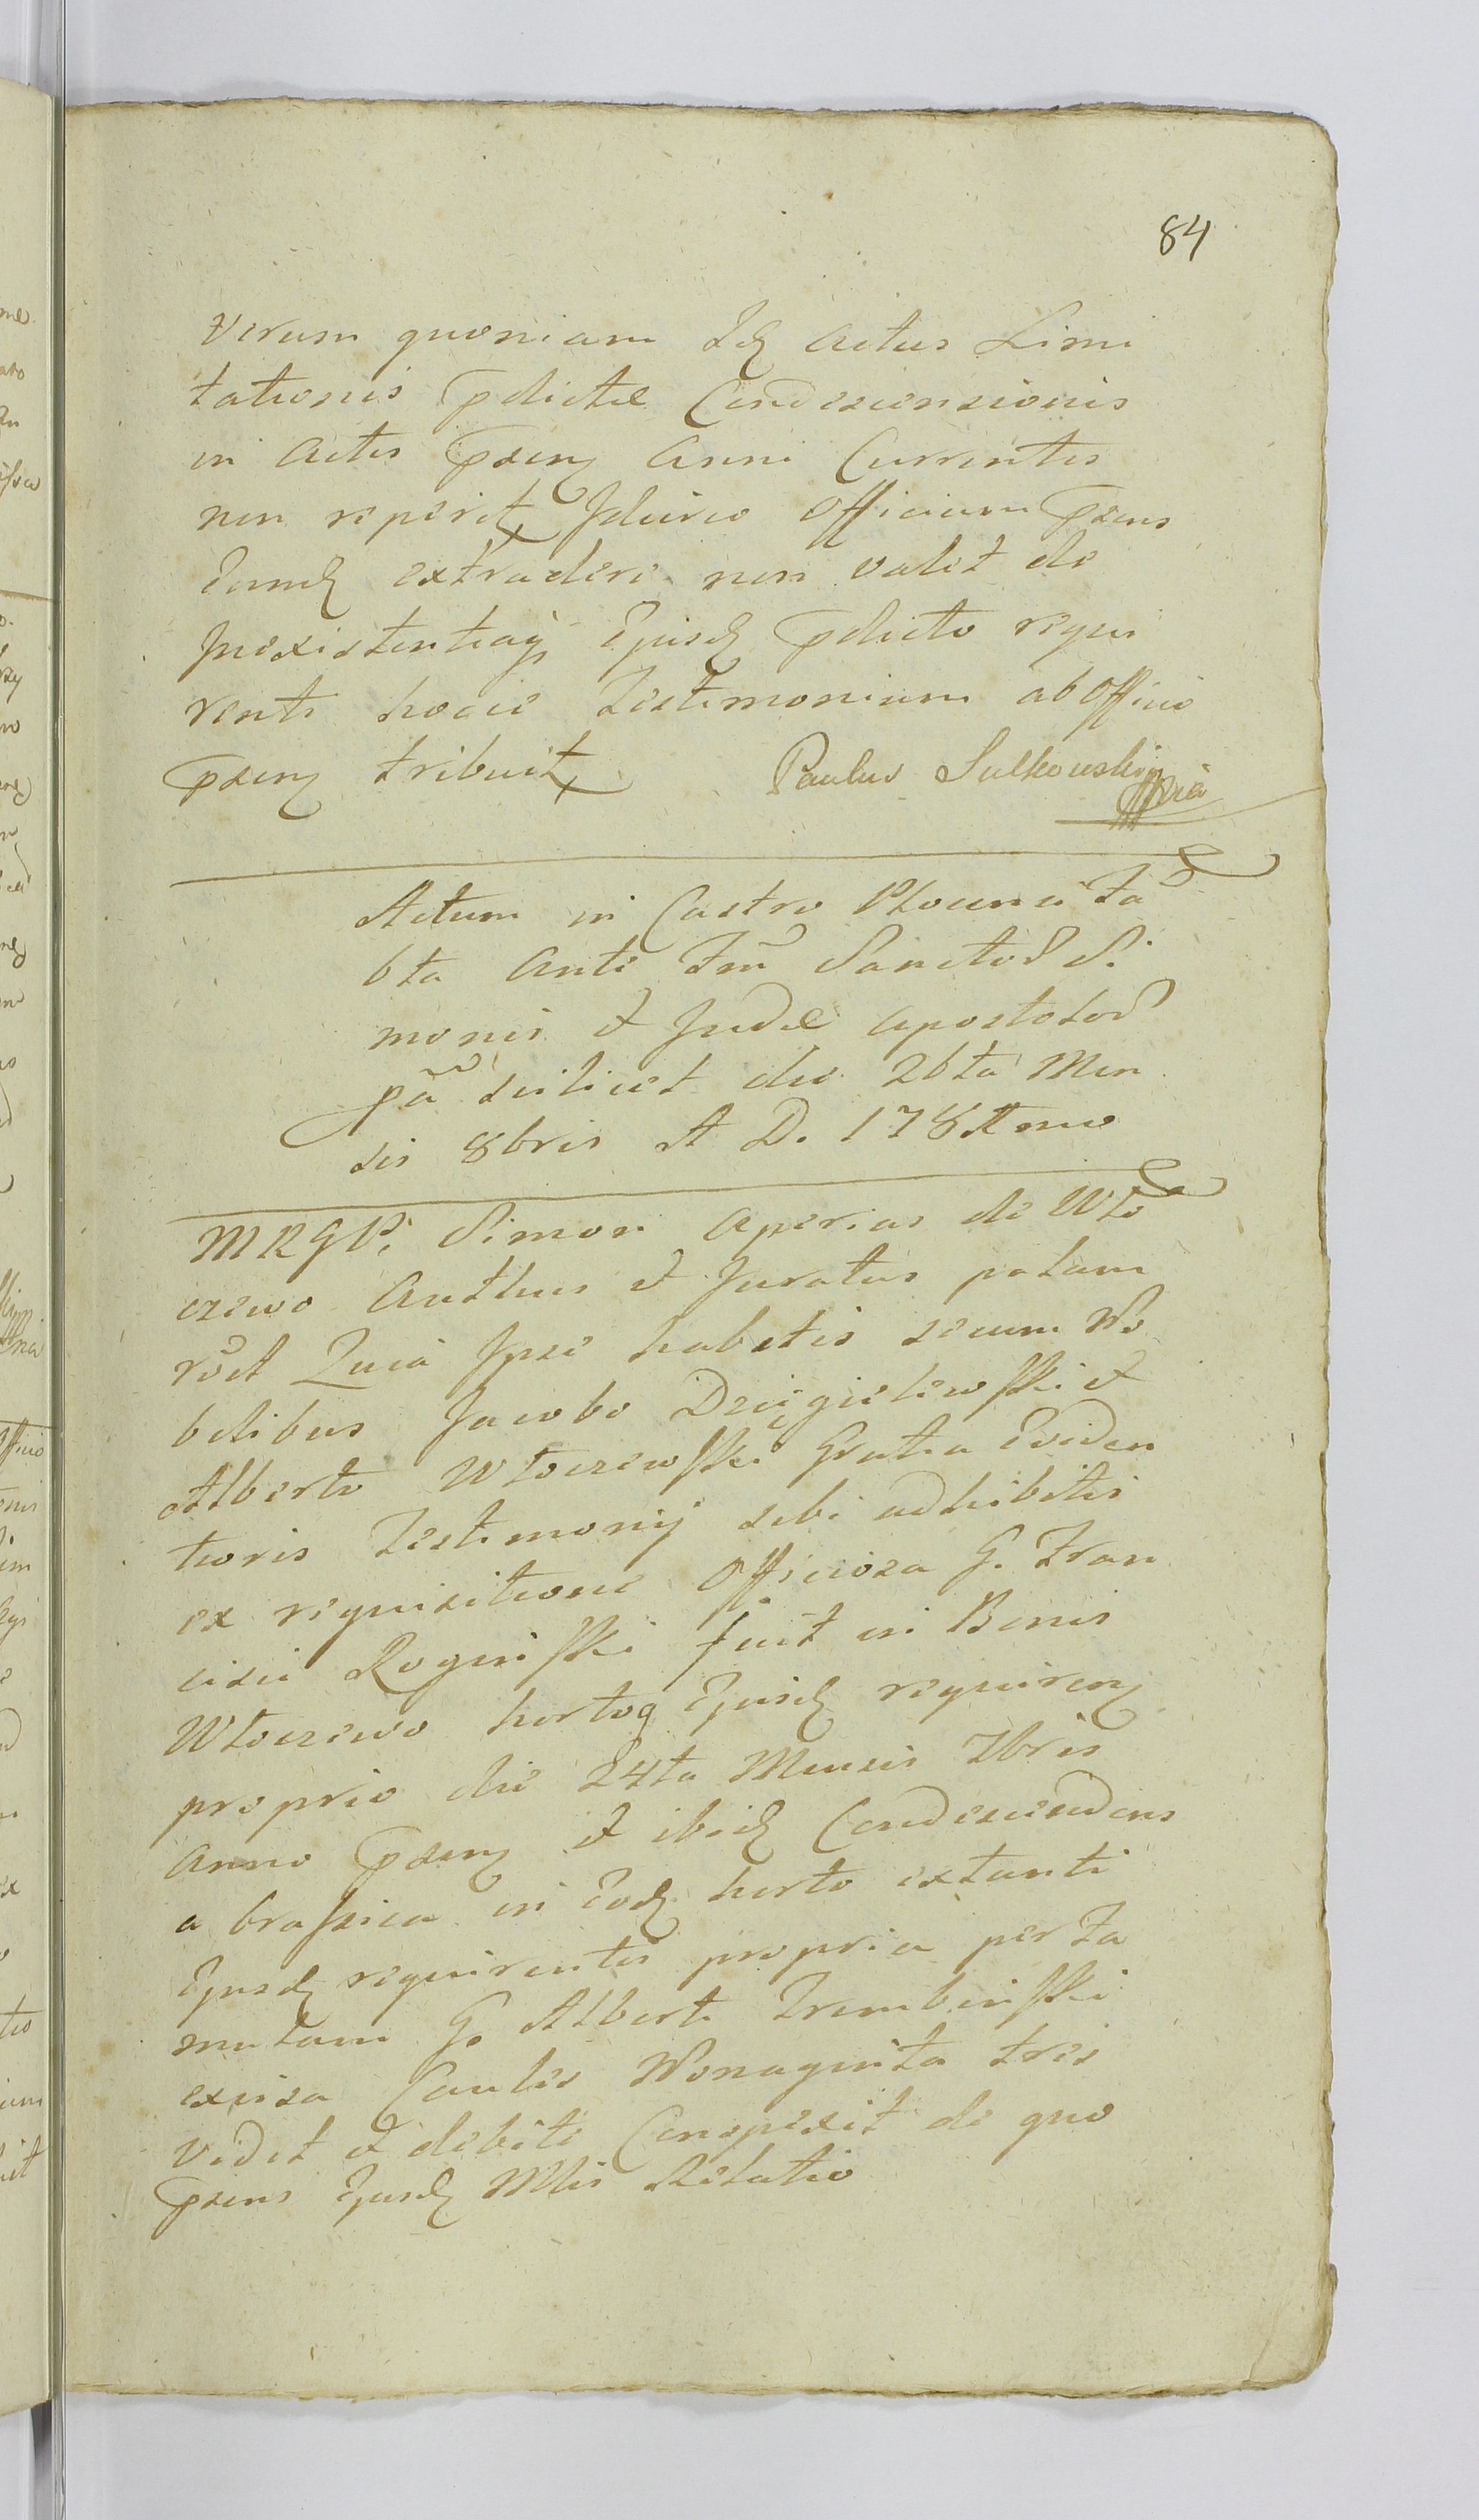 84
Verum quoniam Id Actus Limi
tationis pdictæ Condescensionis
in Actis pseny Anni Currentis
non reperit, Idcirco Officium psens
Eumd extradere non valet de
Inexistentia Ejusd pdicto requi
renti hocce Testimonium ab Officio
pseny tribuit
Paulus Sulkowski mpria
Actum in Castro Plocensi Fa
bta Ante Ftm Sanctor Si
monis et Judæ Apostolor
pa scilicet die 26ta Men
sis 8bris A D. 178
MRGP. Simon Aperias de Wło
czewo Authus et Juratus palam
roct Quia Ipse habitis secum No
bilibus Jacobo Dzięgielewski et
Alberto Włoczewski Gratia Eviden
tioris Testimonij sibi adhibitis
ex requisitione Officiosa G. Fran
cisci Rogiński fuit in Bonis
Włoczewo hortoq Ejusd requireny
proprio die 24ta Mensis 7bris
Anno pseny et ibid Condescendens
a brassica in Eod horto extanti
Ejusd requirentis propria per fa
mulam G. Alberti Trembiński
excisa Caules Nonaginta tres
vidit et debite Conspexit de quo
psens Ejusd Mlis Relatio